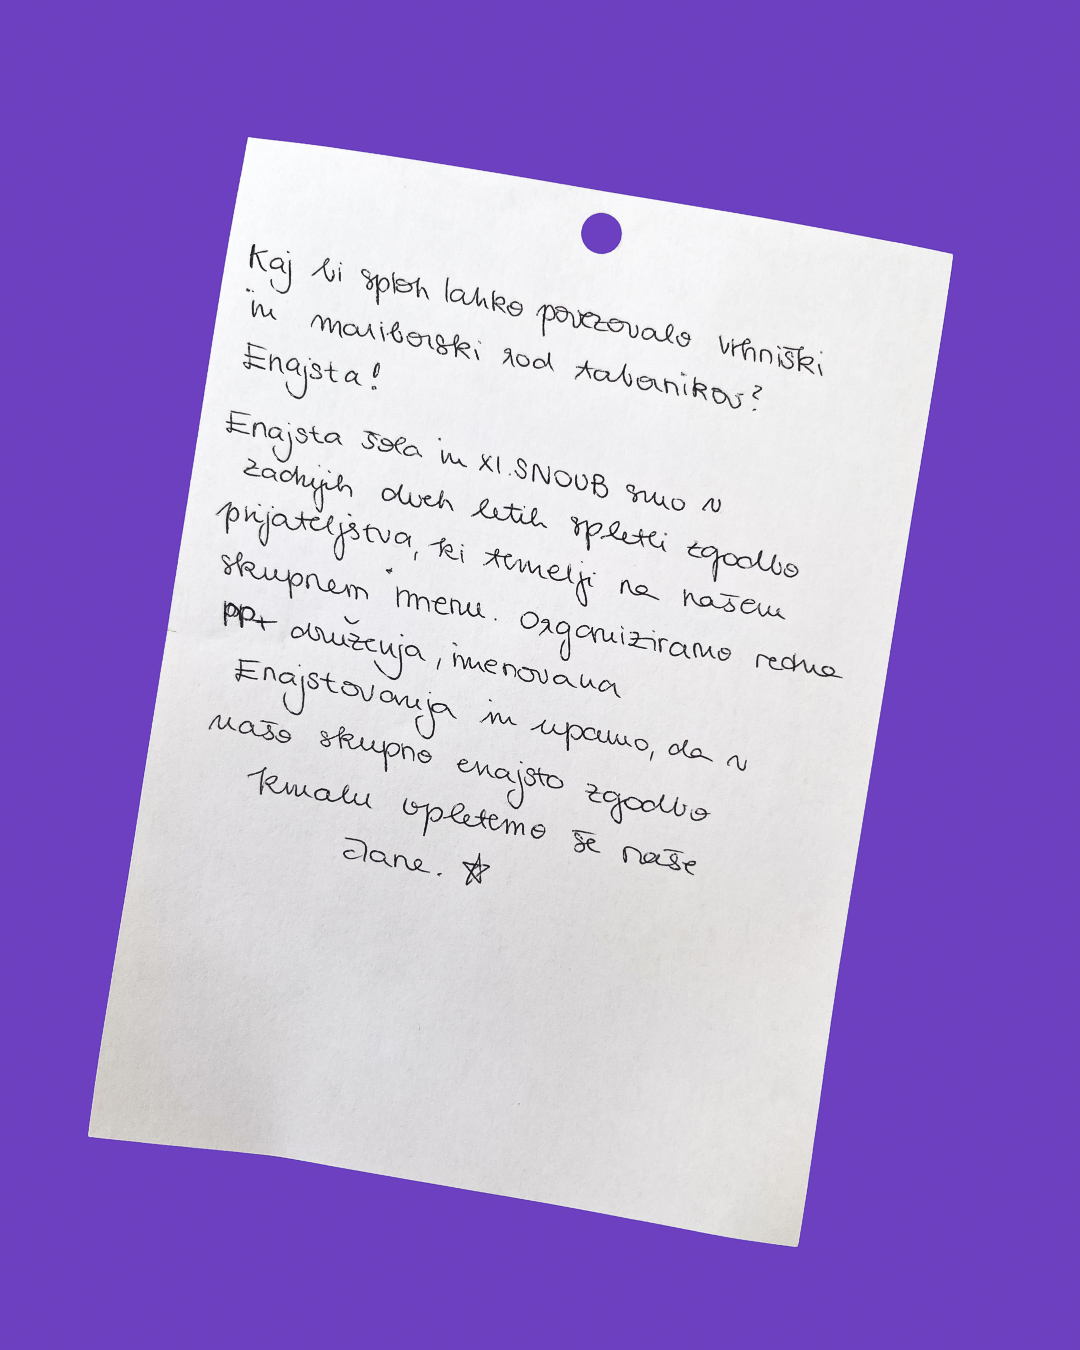 Kaj bi sploh lahko povezovalo vrhniški
in mariborski rod tabornikov?
Enajsta!
Enajsta šola in XI.SNOUB smo v
zadnjih dveh letih spletli zgodbo
prijateljstva, ki temelji na našem
skupnem imenu. Organiziramo redna
PP+ druženja, imenovana
Enajstovanja in upamo, da v
našo skupno enajsto zgodbo
kmalu vpletemo še naše
Jane.